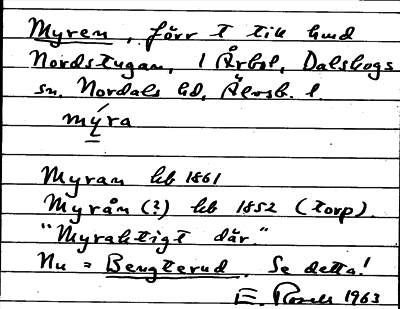 Myren, förr t till hmd
Nordstugan, i Årbol, Dalskogs
sn, Nordals hd, Älvsb. l.
mýra
Myran hb 1861
Myrån (?) hb 1852 (torp).
"Myraktigt där."
Nu = Bengterud. Se detta!
E. Rosell 1963